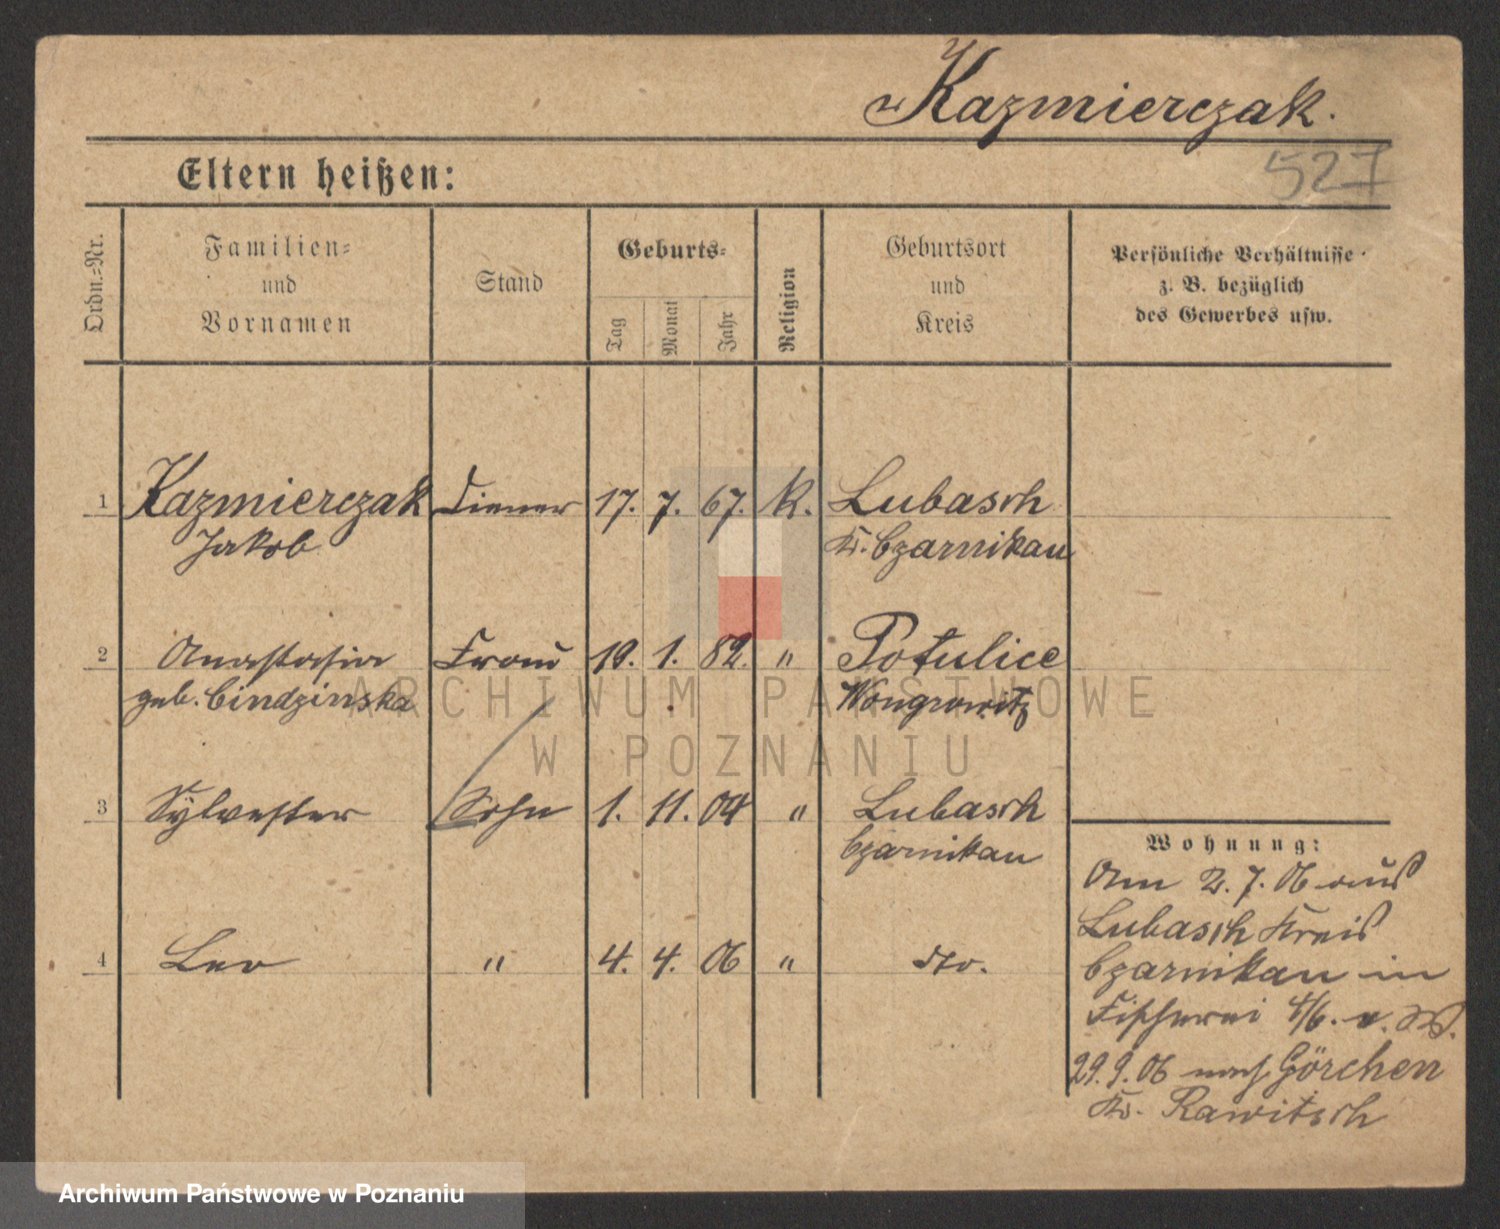 Kazmierczak.
527
Eltern heißen:
Ordn.-Nr.
Familien-
und
Vornamen
Stand
Geburts-
Tag
Monat
Jahr
Religion
Geburtsort
und
Kreis
Persönliche Verhältnisse
z. B. bezüglich
des Gewerbes usw.
1 Kazmierczak Diener 17. 7. 67. K. Lubasch
Jakob Kr. Czarnikau
2 Anastasia Frau 19. 1. 82. " Potulice
geb. Cindzinska Wongrowitz
3 Sylvester Sohn 1. 11. 04 " Lubasch
Czarnikau
4 Leo " 4. 4. 06 " do.
Wohnung:
Am 2. 7. 06 aus
Lubasch Kreis
Czarnikau in
Fischerei 4/6. v. W.
29. 9. 06 nach Görchen
Kr. Rawitsch
ARCHIWUM PAŃSTWOWE
W POZNANIU
Archiwum Państwowe w Poznaniu